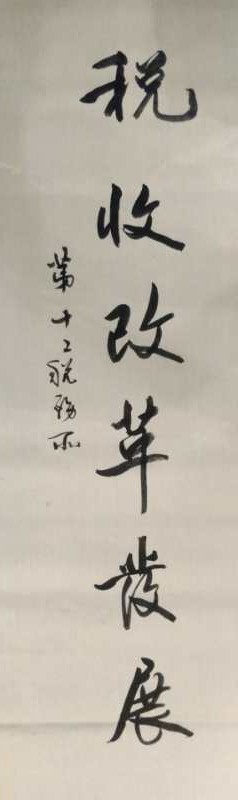 税收改革发展
第十二税務所